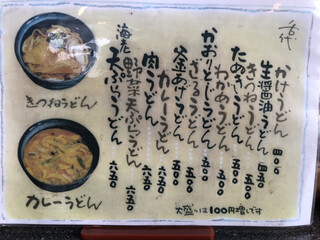 かけうどん 四〇〇
生醤油うどん 四五〇
きつねうどん 五〇〇
たぬきうどん 五〇〇
わかめうどん 五〇〇
かおりとじうどん 五〇〇
ざるうどん 五〇〇
釜あげうどん 五〇〇
カレーうどん 六五〇
肉うどん 六五〇
野菜天ぷらうどん 六五〇
海老天ぷらうどん 六五〇
大盛りは100円増しです
きつねうどん
カレーうどん